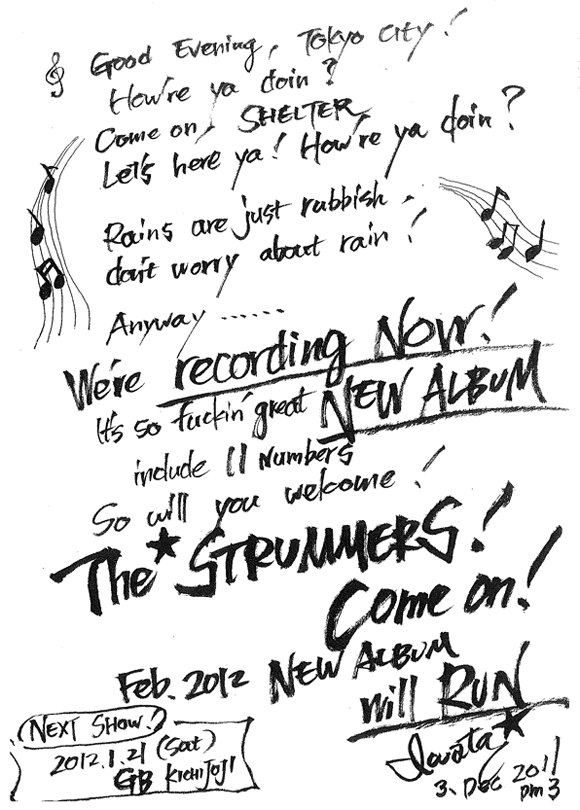 Good Evening, Tokyo City!
How're ya doin?
Come on, SHELTER
Let's here ya! How're ya doin?
Rains are just rubbish.
don't worry about rain!
Anyway ......
We're recording Now!
It's so fuckin' great NEW ALBUM
include 11 Numbers
So will you welcome!
The★STRUMMERS!
Come on!
Feb. 2012 NEW ALBUM
will RUN
NEXT SHOW!
2012.1.21 (Sat)
GB KICHIJOJI
Iwata★
3. Dec 2011
pm 3